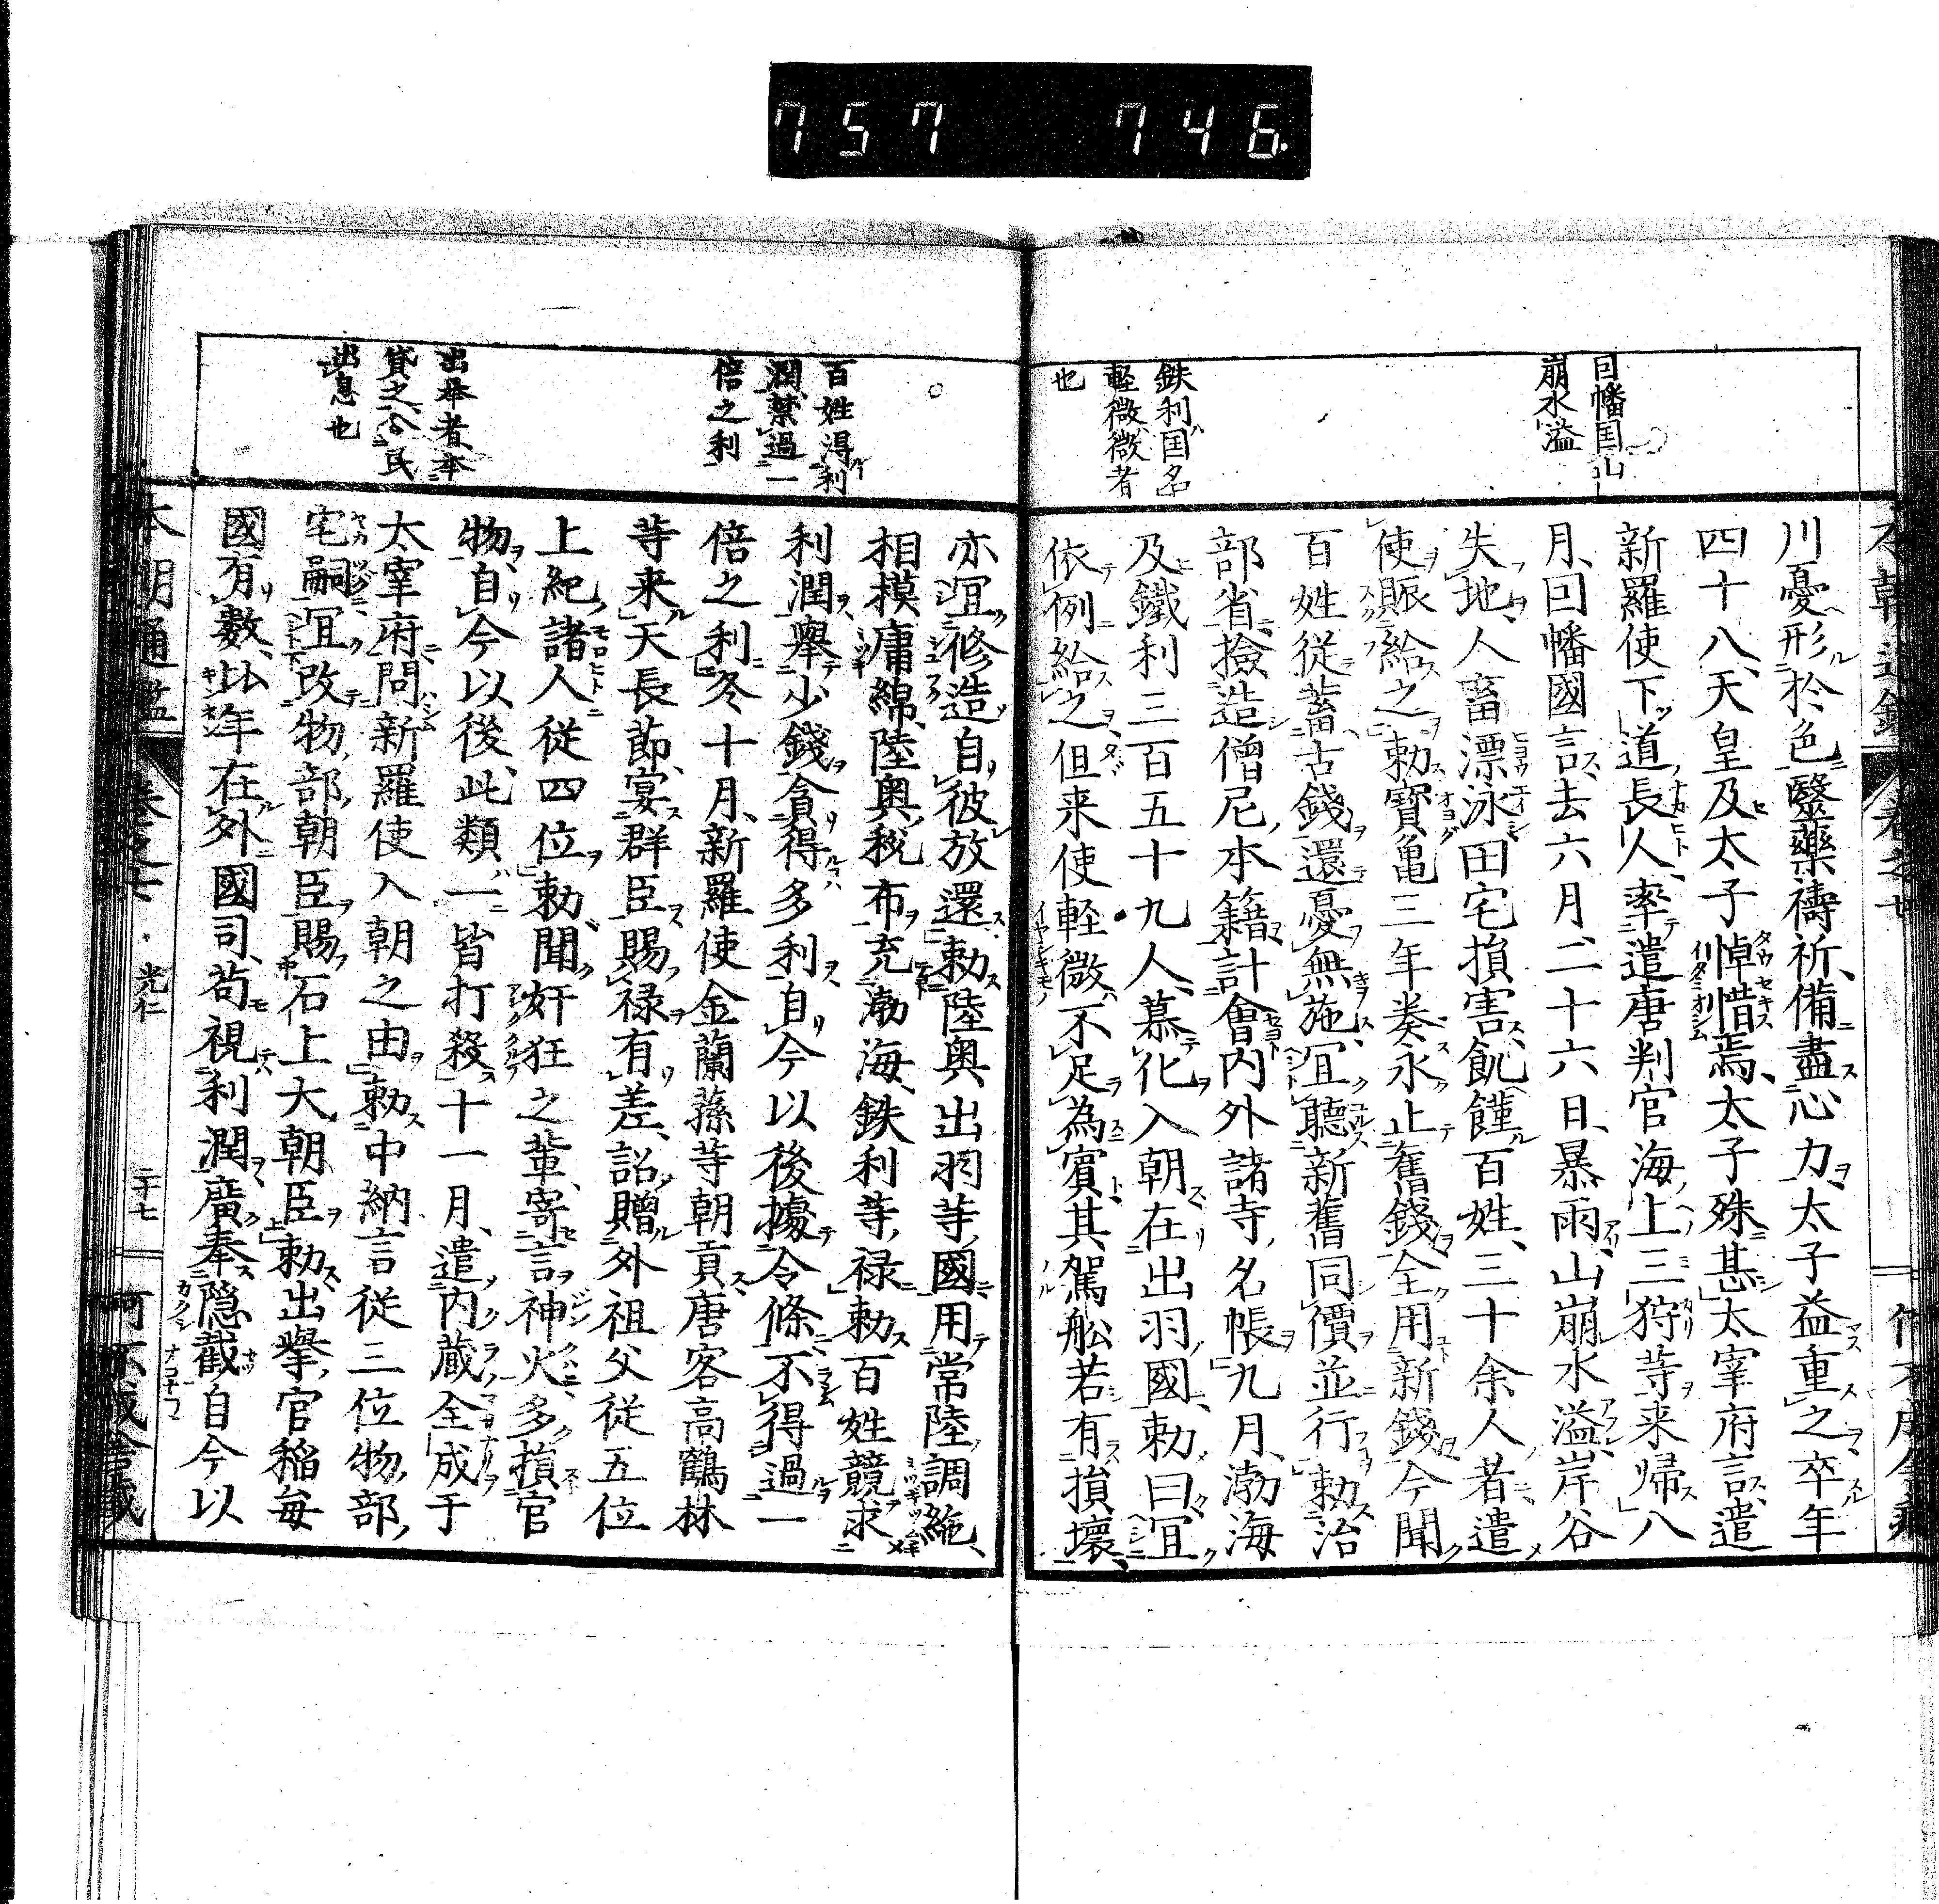 757 746.
因幡国山
崩水溢
鉄利国名
軽微微者
也
川憂形於色醫藥禱祈備盡心力太子益重之卒年
四十八天皇及太子悼惜焉太子殊甚太宰府言遣
新羅使下道長人率遣唐判官海上三狩等来帰八
月因幡國言去六月二十六日暴雨山崩水溢岸谷
失地人畜漂泳田宅損害飢饉百姓三十余人者遣
使賑給之勅寶亀三年奏永止舊錢全用新錢今聞
百姓従蓄古錢還憂無施宜聴新舊同價並行勅治
部省撿造僧尼本籍計會内外諸寺名帳九月渤海
及鐵利三百五十九人慕化入朝在出羽國勅曰宜
依例給之但来使軽微不足為賓其駕舩若有損壞
百姓得利
潤禁過一
倍之利
出挙者本
貸之公民
出息也
亦宜修造自彼放還勅陸奥出羽等國用常陸調絁
相摸庸綿陸奥税布充渤海鉄利等禄勅百姓競求
利潤舉少錢貪得多利自今以後據令條不得過一
倍之利冬十月新羅使金蘭蓀等朝貢唐客高鶴林
等来天長節宴群臣賜禄有差詔贈外祖父従五位
上紀諸人従四位勅聞奸狂之輩寄言神火多損官
物自今以後此類一皆打殺十一月遣内蔵全成于
太宰府問新羅使入朝之由勅中納言従三位物部
宅嗣宜改物部朝臣賜石上大朝臣勅出擧官稲每
國有數比年在外國司苟視利潤廣奉隠截自今以
本朝通鑑 巻之七 光仁 二十七